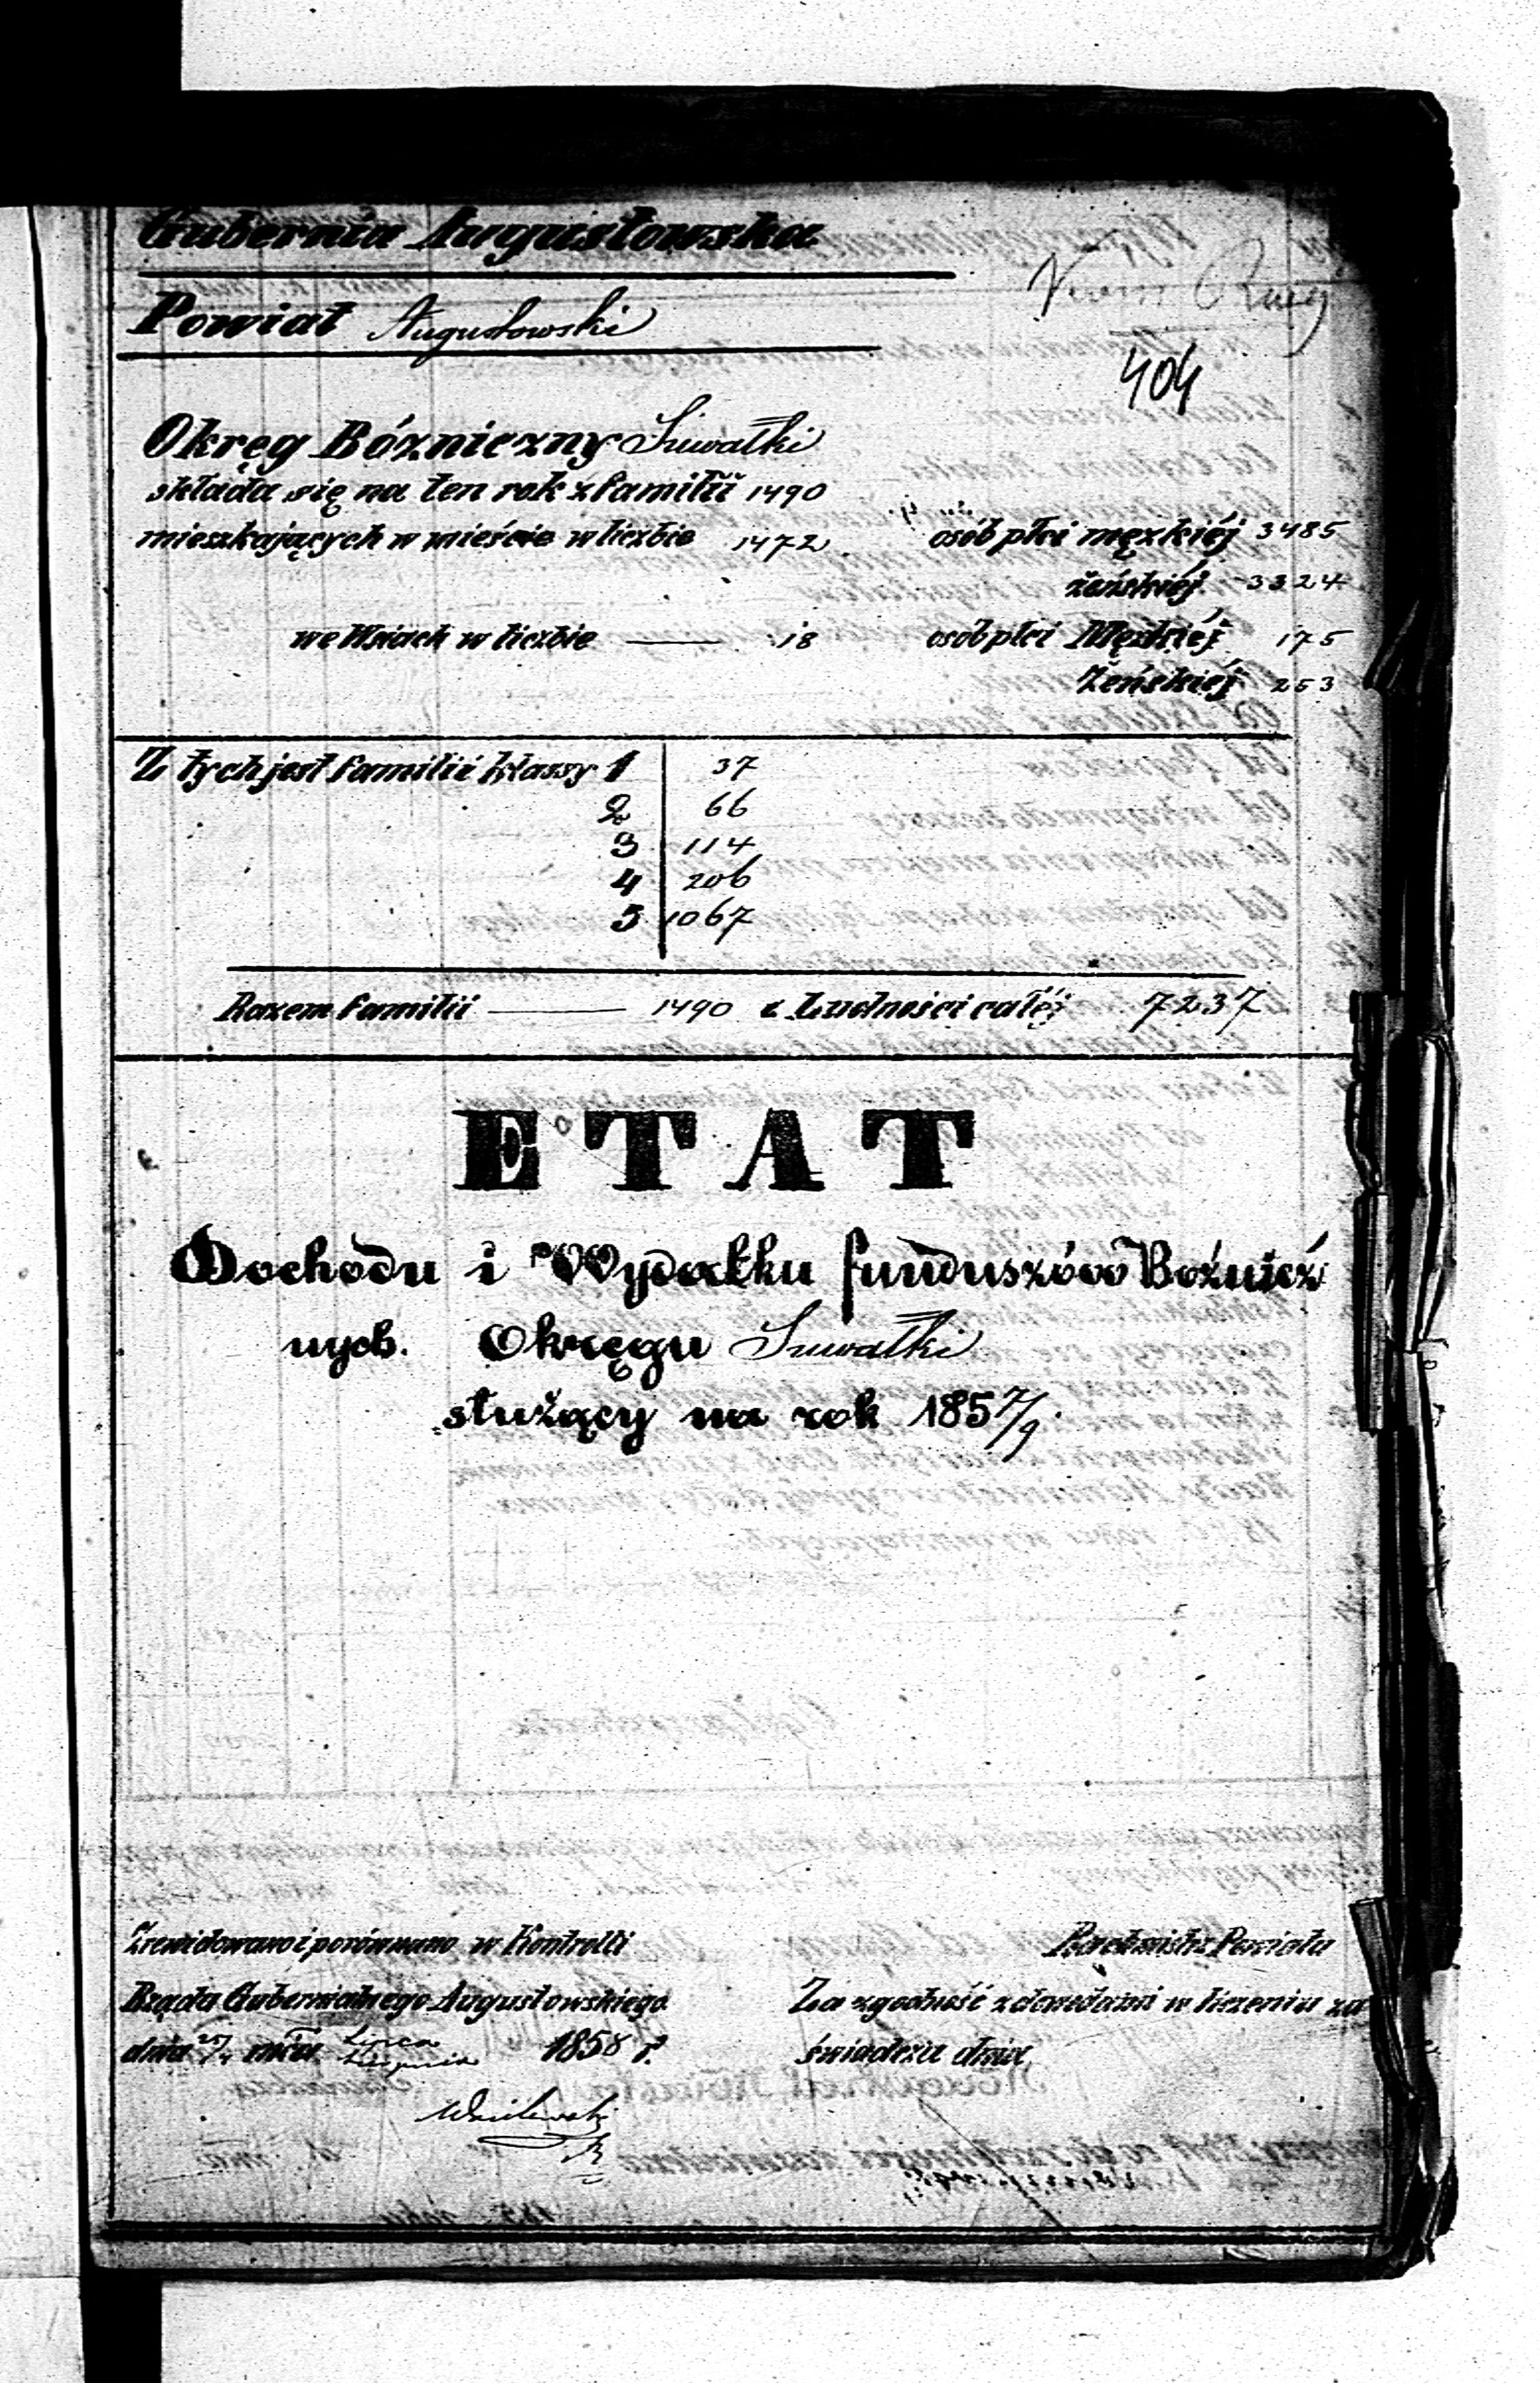 Gubernia Augustowska
Powiat Augustowski
404
Okręg Bóżniczny Suwałki
składa się na ten rok z familii 1490
mieszkających w mieście w liczbie 1472 osób płci męzkiéj 3485
żeńskiéj 3324
we Wsiach w liczbie — 18 osób płci Męzkiéj 175
Żeńskiéj 253
Z tych jest familii klassy 1 37
2 66
3 114
4 206
5 1067
Razem familii — 1490 z Ludności całéj 7237
ETAT
Dochodu i Wydatku funduszów Bożnicz
nych. Okręgu Suwałki
służący na rok 1857/9.
Zrewidowano i porównano w Kontrolli
Rachmistrz Powiatu
Rządu Gubernialnego Augustowskiego
Za zgodność z dowodami w liczeniu za
dnia mca Lipca Sierpnia 1858 r.
świadcza dnia
Wasilewski